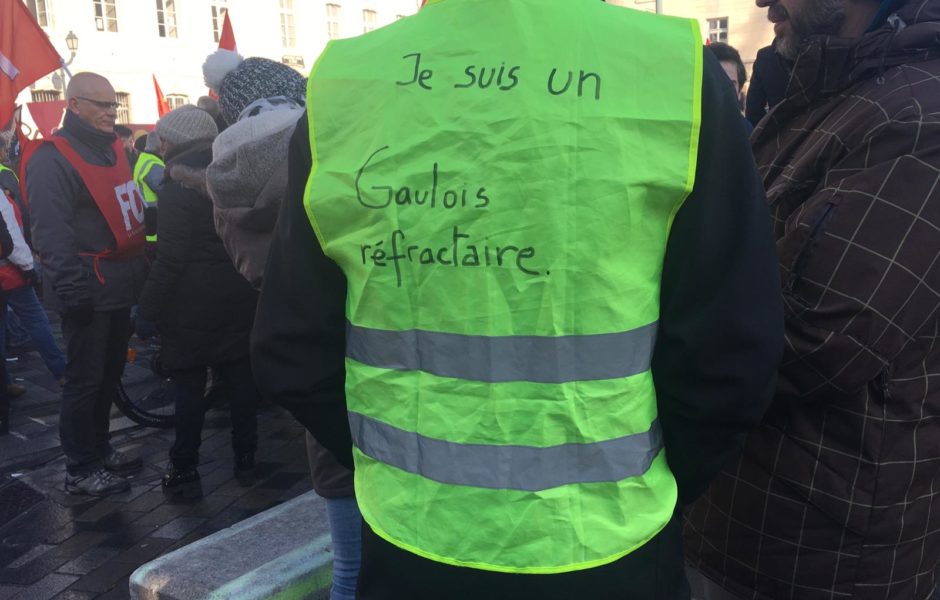 Je suis un
Gaulois
réfractaire.
FO